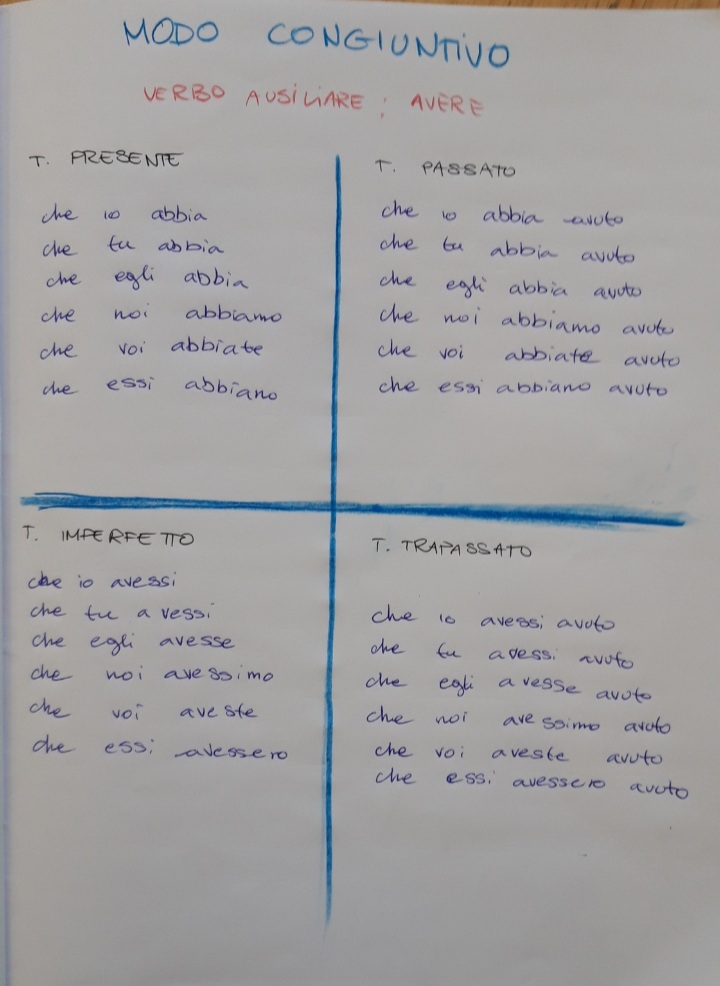 MODO CONGIUNTIVO
VERBO AUSILIARE : AVERE
T. PRESENTE
che io abbia
che tu abbia
che egli abbia
che noi abbiamo
che voi abbiate
che essi abbiano
T. PASSATO
che io abbia avuto
che tu abbia avuto
che egli abbia avuto
che noi abbiamo avuto
che voi abbiate avuto
che essi abbiano avuto
T. IMPERFETTO
che io avessi
che tu avessi
che egli avesse
che noi avessimo
che voi aveste
che essi avessero
T. TRAPASSATO
che io avessi avuto
che tu avessi avuto
che egli avesse avuto
che noi avessimo avuto
che voi aveste avuto
che essi avessero avuto